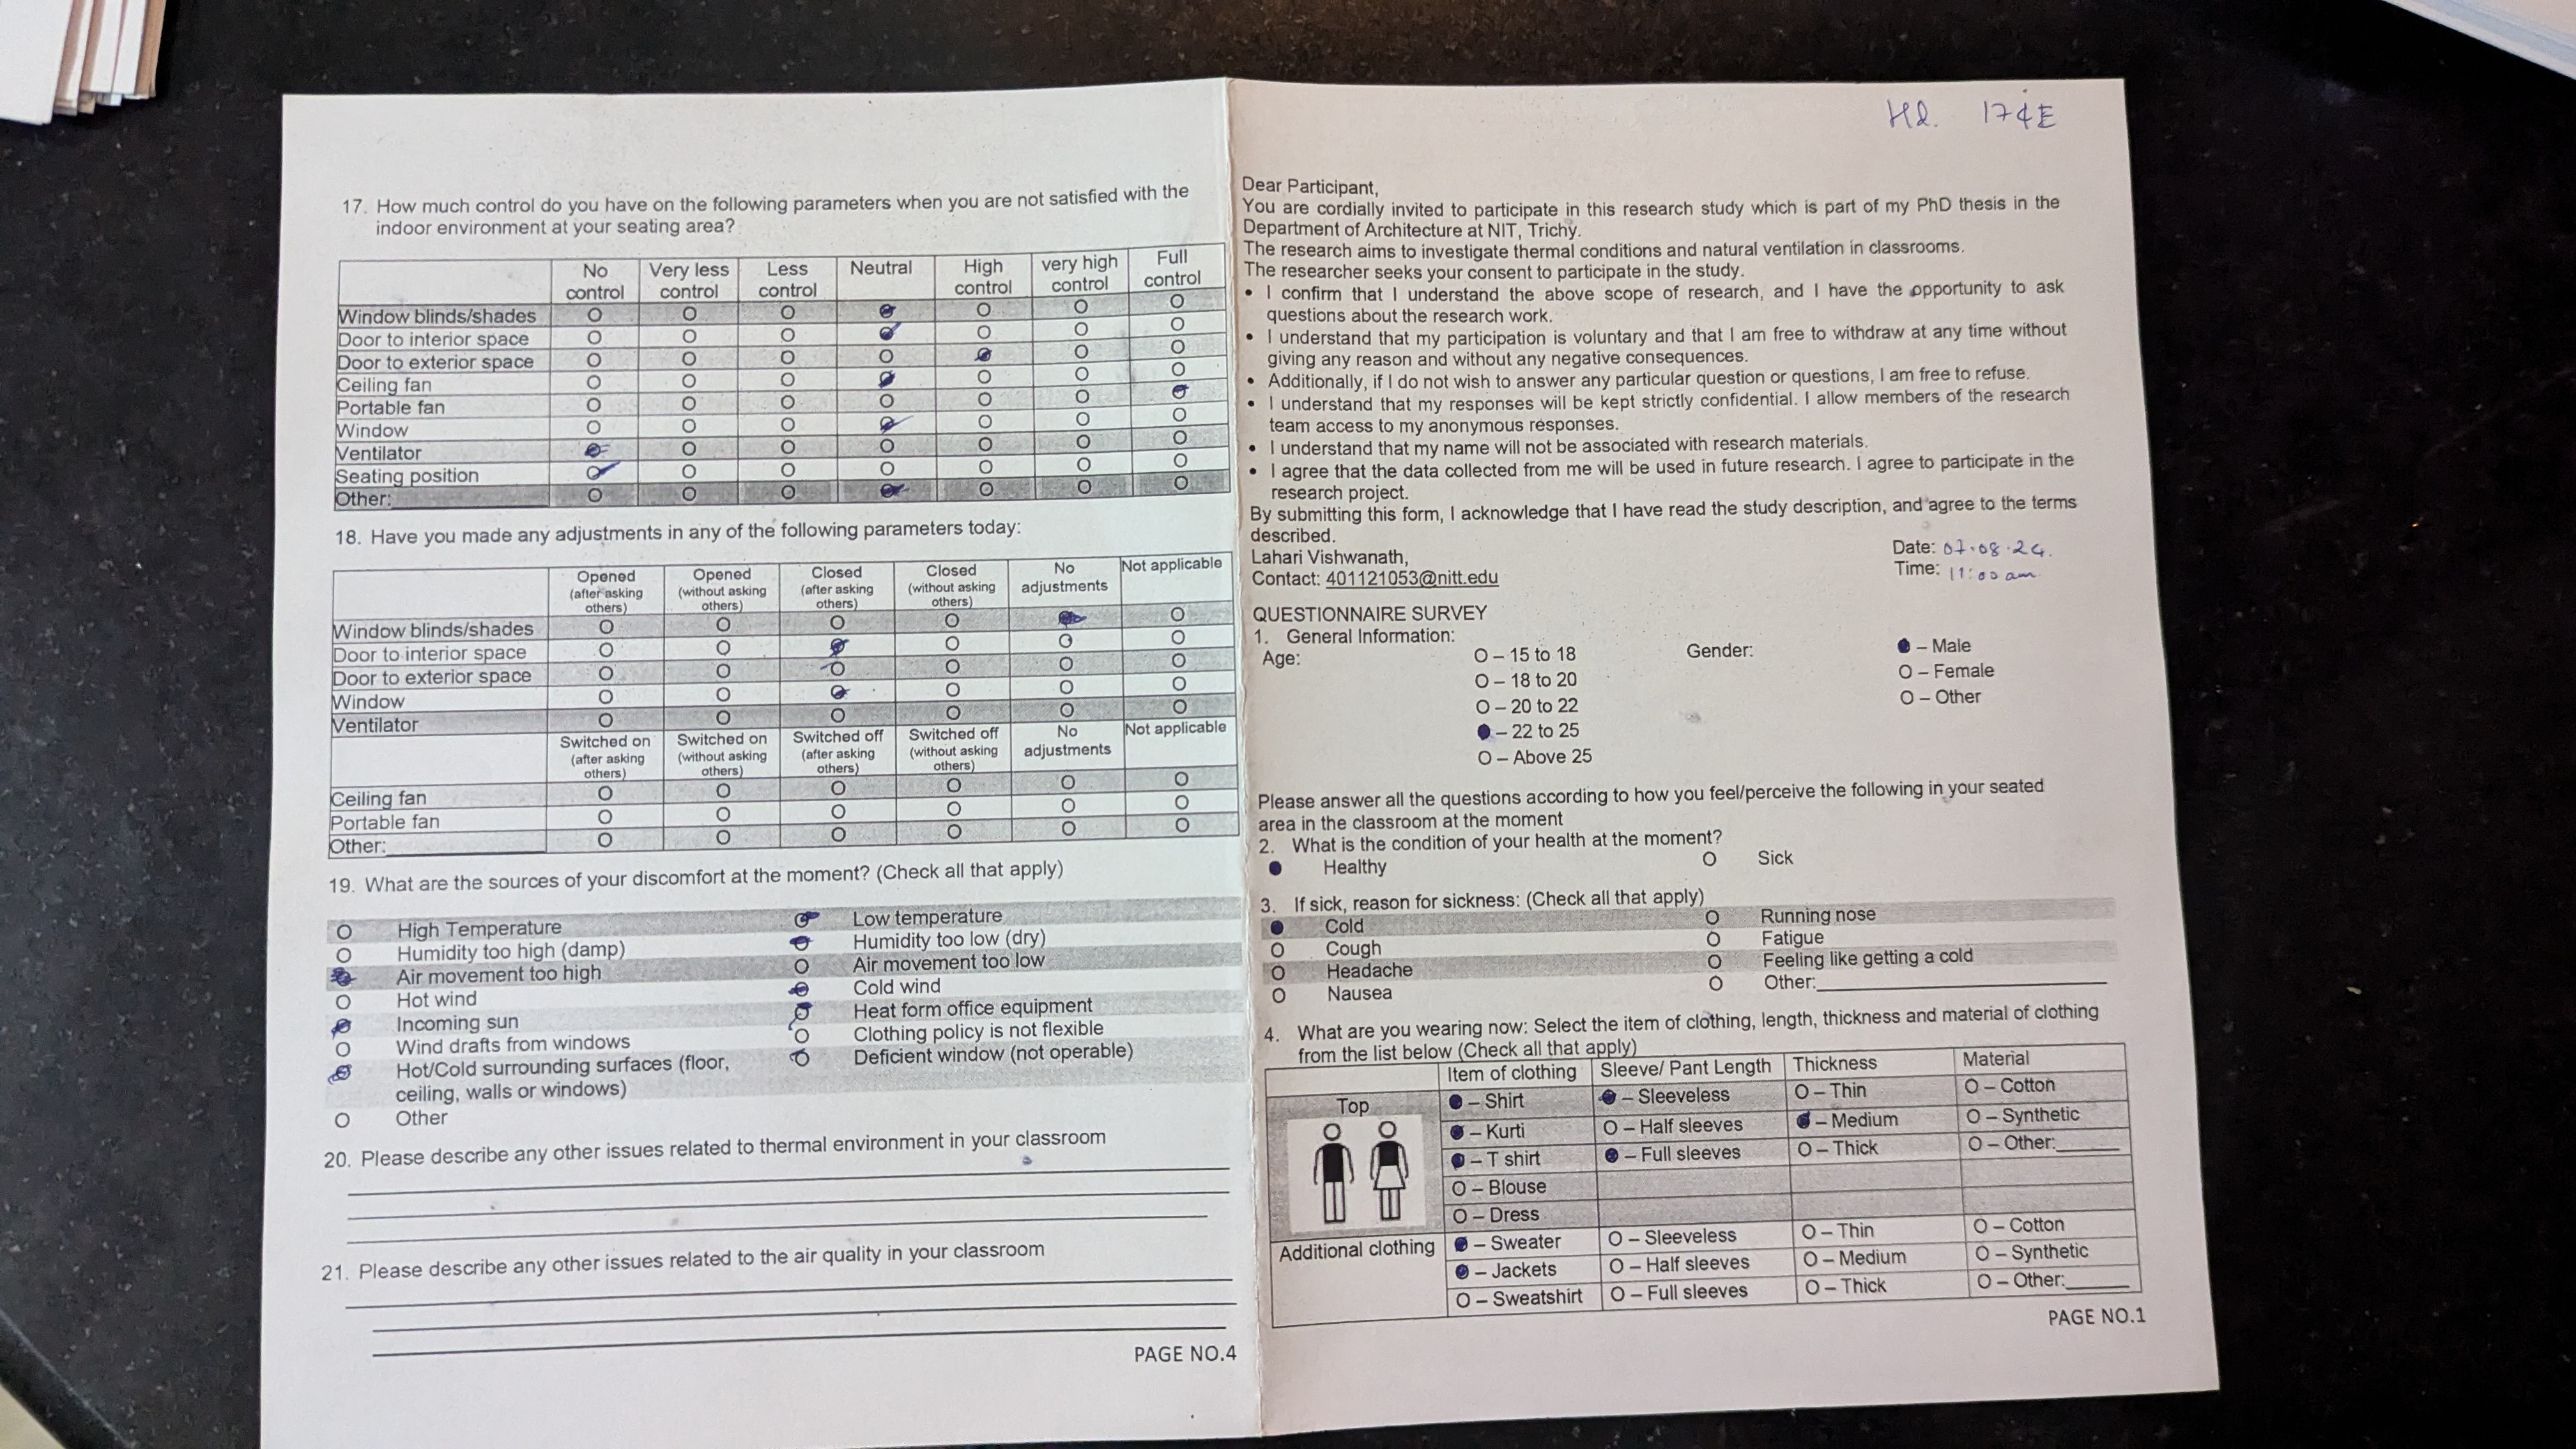 17. How much control do you have on the following parameters when you are not satisfied with the
indoor environment at your seating area?
No control Very less control Less control Neutral High control very high control Full control
Window blinds/shades O O O O O O
Door to interior space O O O O O O
Door to exterior space O O O O O O
Ceiling fan O O O O O O
Portable fan O O O O O O
Window O O O O O O
Ventilator O O O O O O
Seating position O O O O O O
Other: O O O O O O
18. Have you made any adjustments in any of the following parameters today:
Opened (after asking others) Opened (without asking others) Closed (after asking others) Closed (without asking others) No adjustments Not applicable
Window blinds/shades O O O O O
Door to interior space O O O O O
Door to exterior space O O O O O O
Window O O O O O
Ventilator O O O O O O
Switched on (after asking others) Switched on (without asking others) Switched off (after asking others) Switched off (without asking others) No adjustments Not applicable
Ceiling fan O O O O O O
Portable fan O O O O O O
Other: O O O O O O
19. What are the sources of your discomfort at the moment? (Check all that apply)
O High Temperature Low temperature
O Humidity too high (damp) Humidity too low (dry)
Air movement too high O Air movement too low
O Hot wind Cold wind
Incoming sun Heat form office equipment
O Wind drafts from windows O Clothing policy is not flexible
Hot/Cold surrounding surfaces (floor, Deficient window (not operable)
ceiling, walls or windows)
O Other
20. Please describe any other issues related to thermal environment in your classroom
21. Please describe any other issues related to the air quality in your classroom
PAGE NO.4
Dear Participant,
You are cordially invited to participate in this research study which is part of my PhD thesis in the
Department of Architecture at NIT, Trichy.
The research aims to investigate thermal conditions and natural ventilation in classrooms.
The researcher seeks your consent to participate in the study.
• I confirm that I understand the above scope of research, and I have the opportunity to ask
questions about the research work.
• I understand that my participation is voluntary and that I am free to withdraw at any time without
giving any reason and without any negative consequences.
• Additionally, if I do not wish to answer any particular question or questions, I am free to refuse.
• I understand that my responses will be kept strictly confidential. I allow members of the research
team access to my anonymous responses.
• I understand that my name will not be associated with research materials.
• I agree that the data collected from me will be used in future research. I agree to participate in the
research project.
By submitting this form, I acknowledge that I have read the study description, and agree to the terms
described.
Lahari Vishwanath,
Contact: 401121053@nitt.edu
Date: 07.08.24.
Time: 11:00 am
QUESTIONNAIRE SURVEY
1. General Information:
Age: O – 15 to 18 Gender: – Male
O – 18 to 20 O – Female
O – 20 to 22 O – Other
– 22 to 25
O – Above 25
Please answer all the questions according to how you feel/perceive the following in your seated
area in the classroom at the moment
2. What is the condition of your health at the moment?
Healthy O Sick
3. If sick, reason for sickness: (Check all that apply)
Cold O Running nose
O Cough O Fatigue
O Headache O Feeling like getting a cold
O Nausea O Other:
4. What are you wearing now: Select the item of clothing, length, thickness and material of clothing
from the list below (Check all that apply)
Item of clothing Sleeve/ Pant Length Thickness Material
Top – Shirt – Sleeveless O – Thin O – Cotton
– Kurti O – Half sleeves – Medium O – Synthetic
– T shirt – Full sleeves O – Thick O – Other:
O – Blouse
O – Dress
Additional clothing – Sweater O – Sleeveless O – Thin O – Cotton
– Jackets O – Half sleeves O – Medium O – Synthetic
O – Sweatshirt O – Full sleeves O – Thick O – Other:
PAGE NO.1